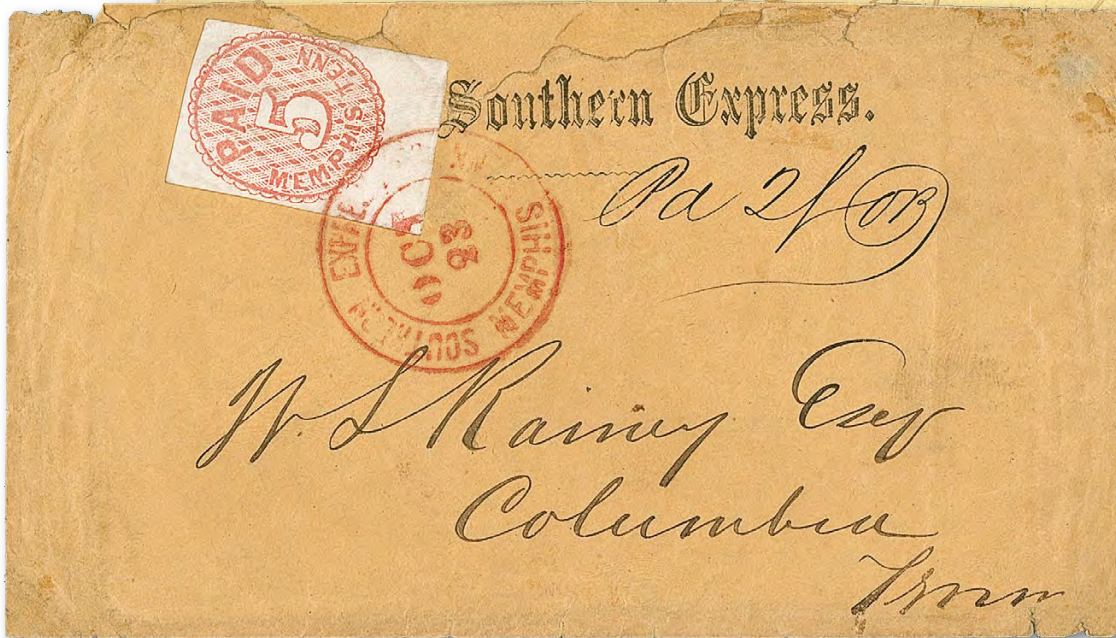 PAID 5 MEMPHIS, TENN
Southern Express.
Pd 2/
SOUTHERN EXPRE MEMPHIS
OCT
23
W. L. Rainey Esq
Columbia
Tenn